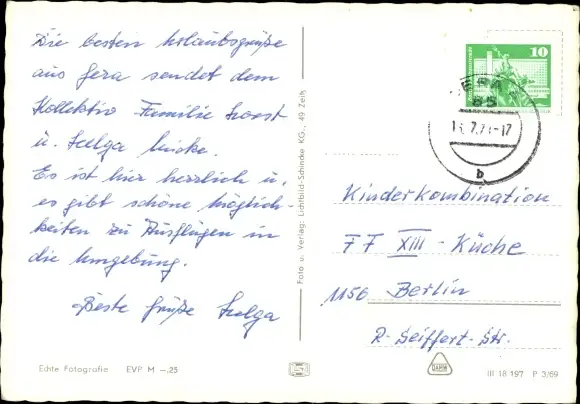 Die besten Urlaubsgrüße
aus Gera sendet dem
Kollektiv Familie Horst
u. Helga
Es ist hier herrlich u.
es gibt schöne Möglich-
keiten zu Ausflügen in
die Umgebung.
Beste Grüße Helga
Echte Fotografie EVP M –.25
Foto u. Verlag: Lichtbild-Schincke KG., 49 Zeitz
10
GERA
65
7.7 -17
b
Kinderkombination
FF XIII - Küche
1156 Berlin
R.-Seiffert-Str.
DARW
III 18 197 P 3/69